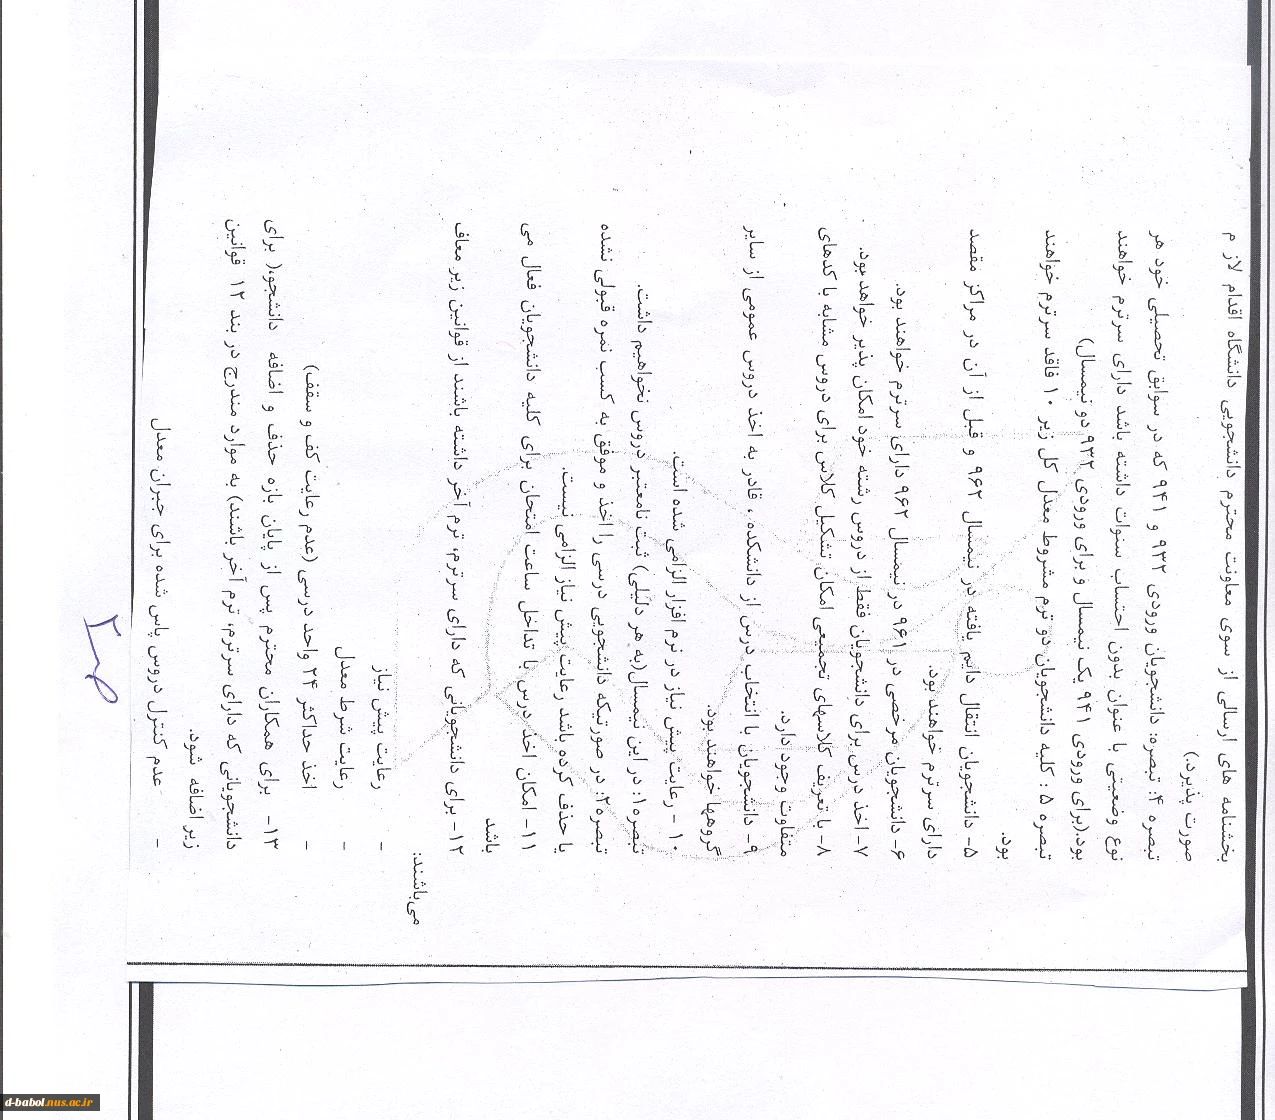 بخشنامه های ارسالی از سوی معاونت محترم دانشجویی دانشگاه اقدام لاز م
صورت پذیرد.)
تبصره ۴: تبصره: دانشجویان ورودی ۹۳۲ و ۹۴۱ که در سوابق تحصیلی خود هر
نوع وضعیتی با عنوان بدون احتساب سنوات داشته باشد دارای سرترم خواهند
بود.(برای ورودی ۹۴۱ یک نیمسال و برای ورودی ۹۳۲ دو نیمسال)
تبصره ۵ : کلیه دانشجویان دو ترم مشروط معدل کل زیر ۱۰ فاقد سرترم خواهند
بود.
۵- دانشجویان انتقال دایم یافته در نیمسال ۹۶۲ و قبل از آن در مراکز مقصد
دارای سرترم خواهند بود.
۶- دانشجویان مرخصی در ۹۶۱ در نیمسال ۹۶۲ دارای سرترم خواهند بود.
۷- اخذ درس برای دانشجویان فقط از دروس رشته خود امکان پذیر خواهد بود.
۸- با تعریف کلاسهای تجمیعی امکان تشکیل کلاس برای دروس مشابه با کدهای
متفاوت وجود دارد.
۹- دانشجویان با انتخاب درس از دانشکده ، قادر به اخذ دروس عمومی از سایر
گروهها خواهند بود.
۱۰ - رعایت پیش نیاز در نرم افزار الزامی شده است.
تبصره۱: در این نیمسال(به هر دلیلی) ثبت نامعتبر دروس نخواهیم داشت.
تبصره۲: در صورتیکه دانشجویی درسی را اخذ و موفق به کسب نمره قبولی نشده
یا حذف کرده باشد رعایت پیش نیاز الزامی نیست.
۱۱- امکان اخذ درس با تداخل ساعت امتحان برای کلیه دانشجویان فعال می
باشد
۱۲- برای دانشجویانی که دارای سرترم، ترم آخر داشته باشند از قوانین زیر معاف
می‌باشند:
- رعایت پیش نیاز
- رعایت شرط معدل
- اخذ حداکثر ۲۴ واحد درسی (عدم رعایت کف و سقف)
۱۳- برای همکاران محترم پس از پایان بازه حذف و اضافه دانشجو،( برای
دانشجویانی که دارای سرترم، ترم آخر باشند) به موارد مندرج در بند ۱۲ قوانین
زیر اضافه شود.
- عدم کنترل دروس پاس شده برای جبران معدل
d-babol.nus.ac.ir